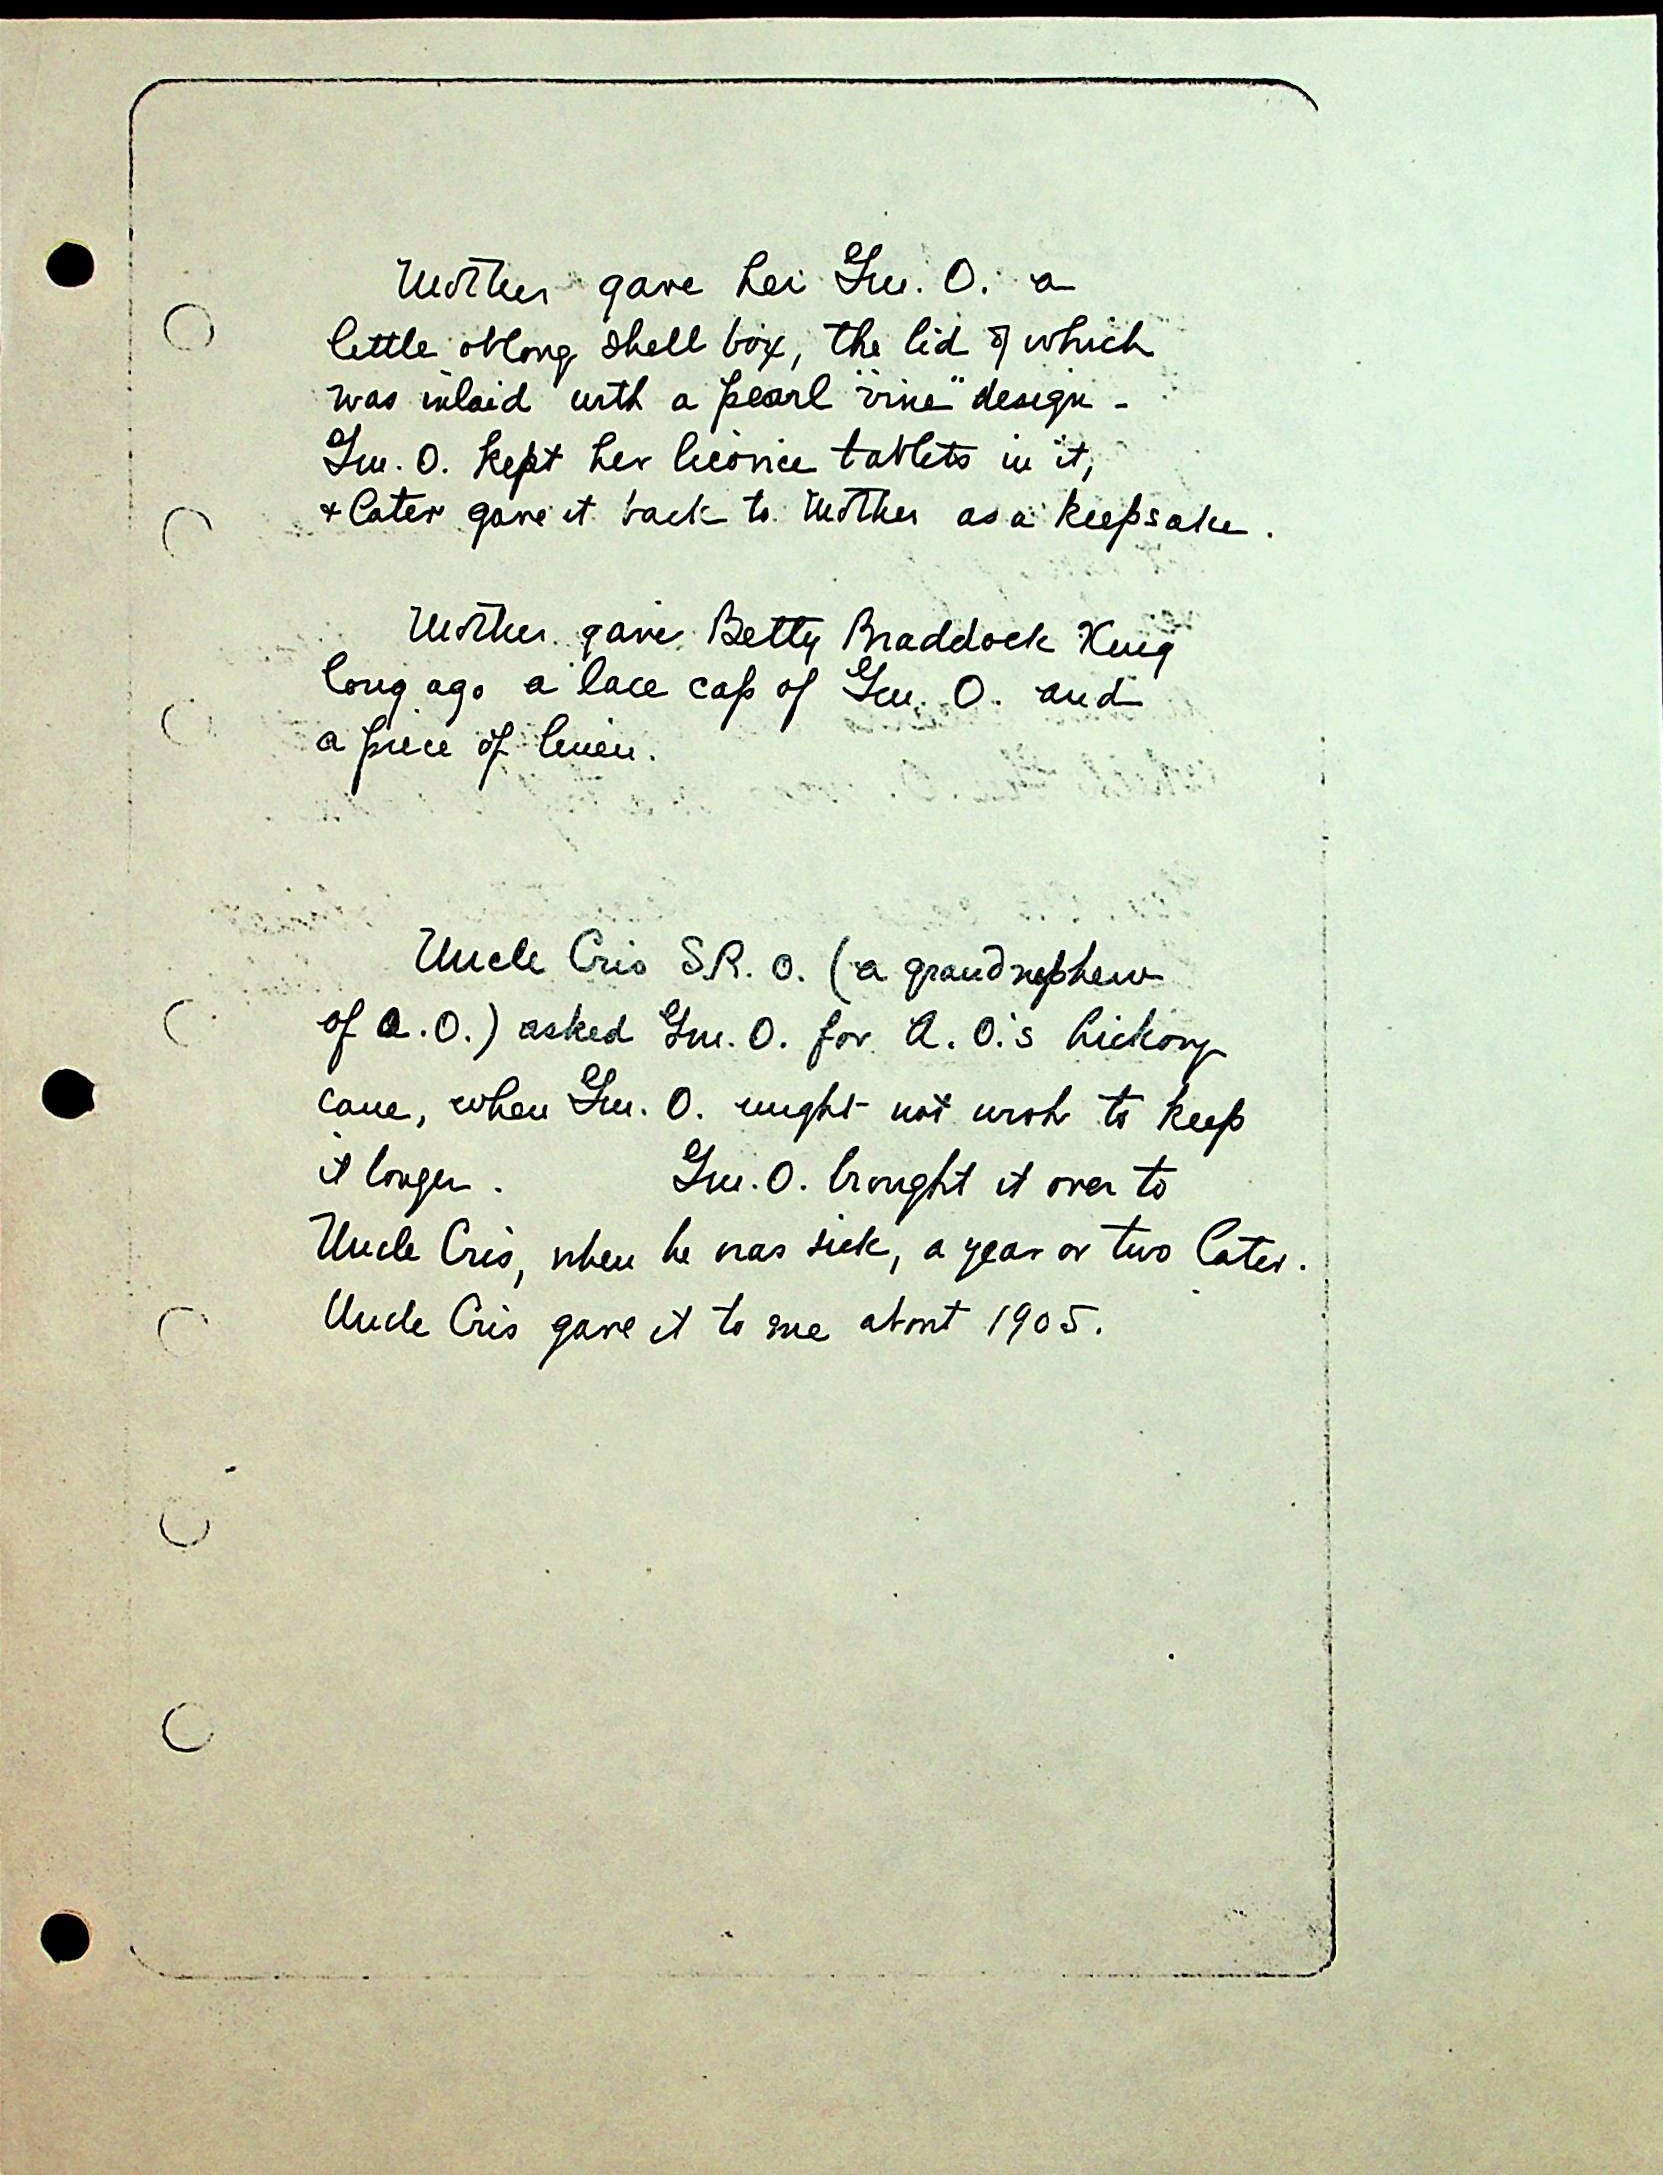 Mother gave her Gm. O. a
little oblong shell box, the lid of which
was inlaid with a pearl "vine" design -
Gm. O. kept her licorice tablets in it,
& later gave it back to Mother as a keepsake.
Mother gave Betty Braddock King
long ago a lace cap of Gm. O. and
a piece of linen.
Uncle Cris S.R. O. (a grandnephew
of A.O.) asked Gm. O. for A. O.'s hickory
cane, when Gm. O. might not wish to keep
it longer. Gm. O. brought it over to
Uncle Cris, when he was sick, a year or two later.
Uncle Cris gave it to me about 1905.